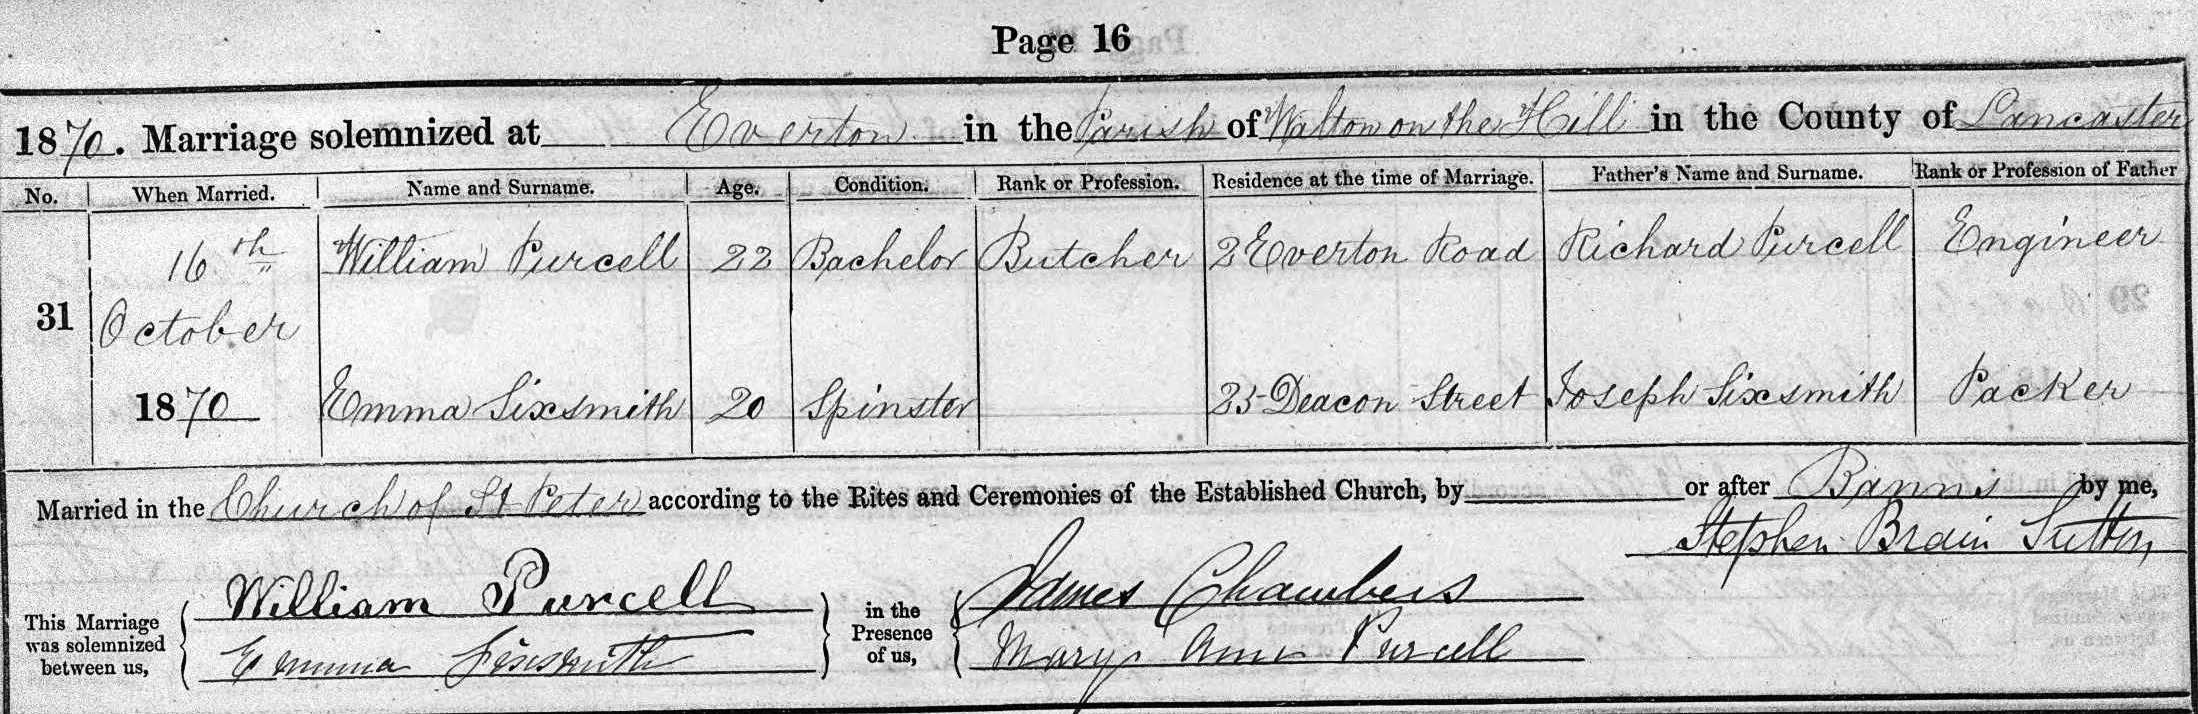 Page 16
1870. Marriage solemnized at Everton in the Parish of Walton on the Hill in the County of Lancaster
No. When Married. Name and Surname. Age. Condition. Rank or Profession. Residence at the time of Marriage. Father's Name and Surname. Rank or Profession of Father
16th William Purcell 22 Bachelor Butcher 2 Everton Road Richard Purcell Engineer
31 October
1870 Emma Sixsmith 20 Spinster 25 Deacon Street Joseph Sixsmith Packer
Married in the Church of St Peter according to the Rites and Ceremonies of the Established Church, by or after Banns by me,
Stephen Brain Sutton
This Marriage was solemnized between us,
William Purcell
Emma Sixsmith
in the Presence of us,
James Chambers
Mary Ann Purcell